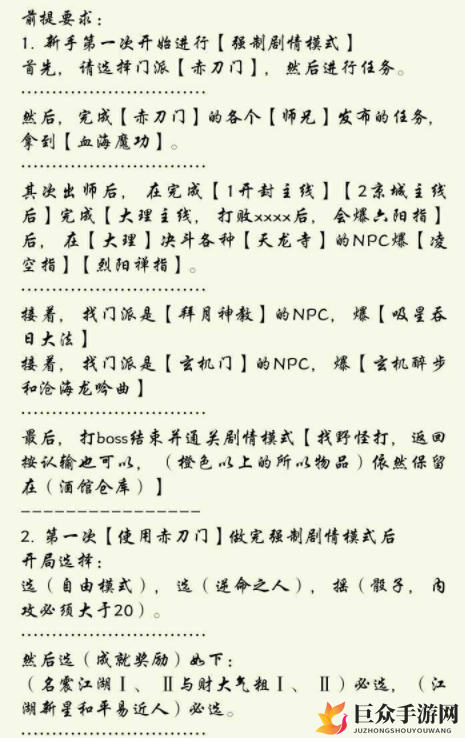 前提要求：
1. 新手第一次开始进行【强制剧情模式】
首先，请选择门派【赤刀门】，然后进行任务。
······························
然后，完成【赤刀门】的各个【师兄】发布的任务，
拿到【血海魔功】。
······························
其次出师后，在完成【1开封主线】【2京城主线
后】完成【大理主线，打败xxxx后，会爆六阳指】
后，在【大理】决斗各种【天龙寺】的NPC爆【凌
空指】【烈阳禅指】。
······························
接着，找门派是【拜月神教】的NPC，爆【吸星吞
日大法】
接着，找门派是【玄机门】的NPC，爆【玄机醉步
和沧海龙吟曲】
······························
最后，打boss结束并通关剧情模式【找野怪打，返回
按认输也可以，（橙色以上的所以物品）依然保留
在（酒馆仓库）】
-----------------
2. 第一次【使用赤刀门】做完强制剧情模式后
开局选择：
选（自由模式），选（逆命之人），摇（骰子，内
攻必须大于20）。
······························
然后选（成就奖励）如下：
（名震江湖Ⅰ、Ⅱ与财大气粗Ⅰ、Ⅱ）必选，（江
湖新星和平易近人）必选。
······························
巨众手游网
JUZHONGSHOUYOUWANG